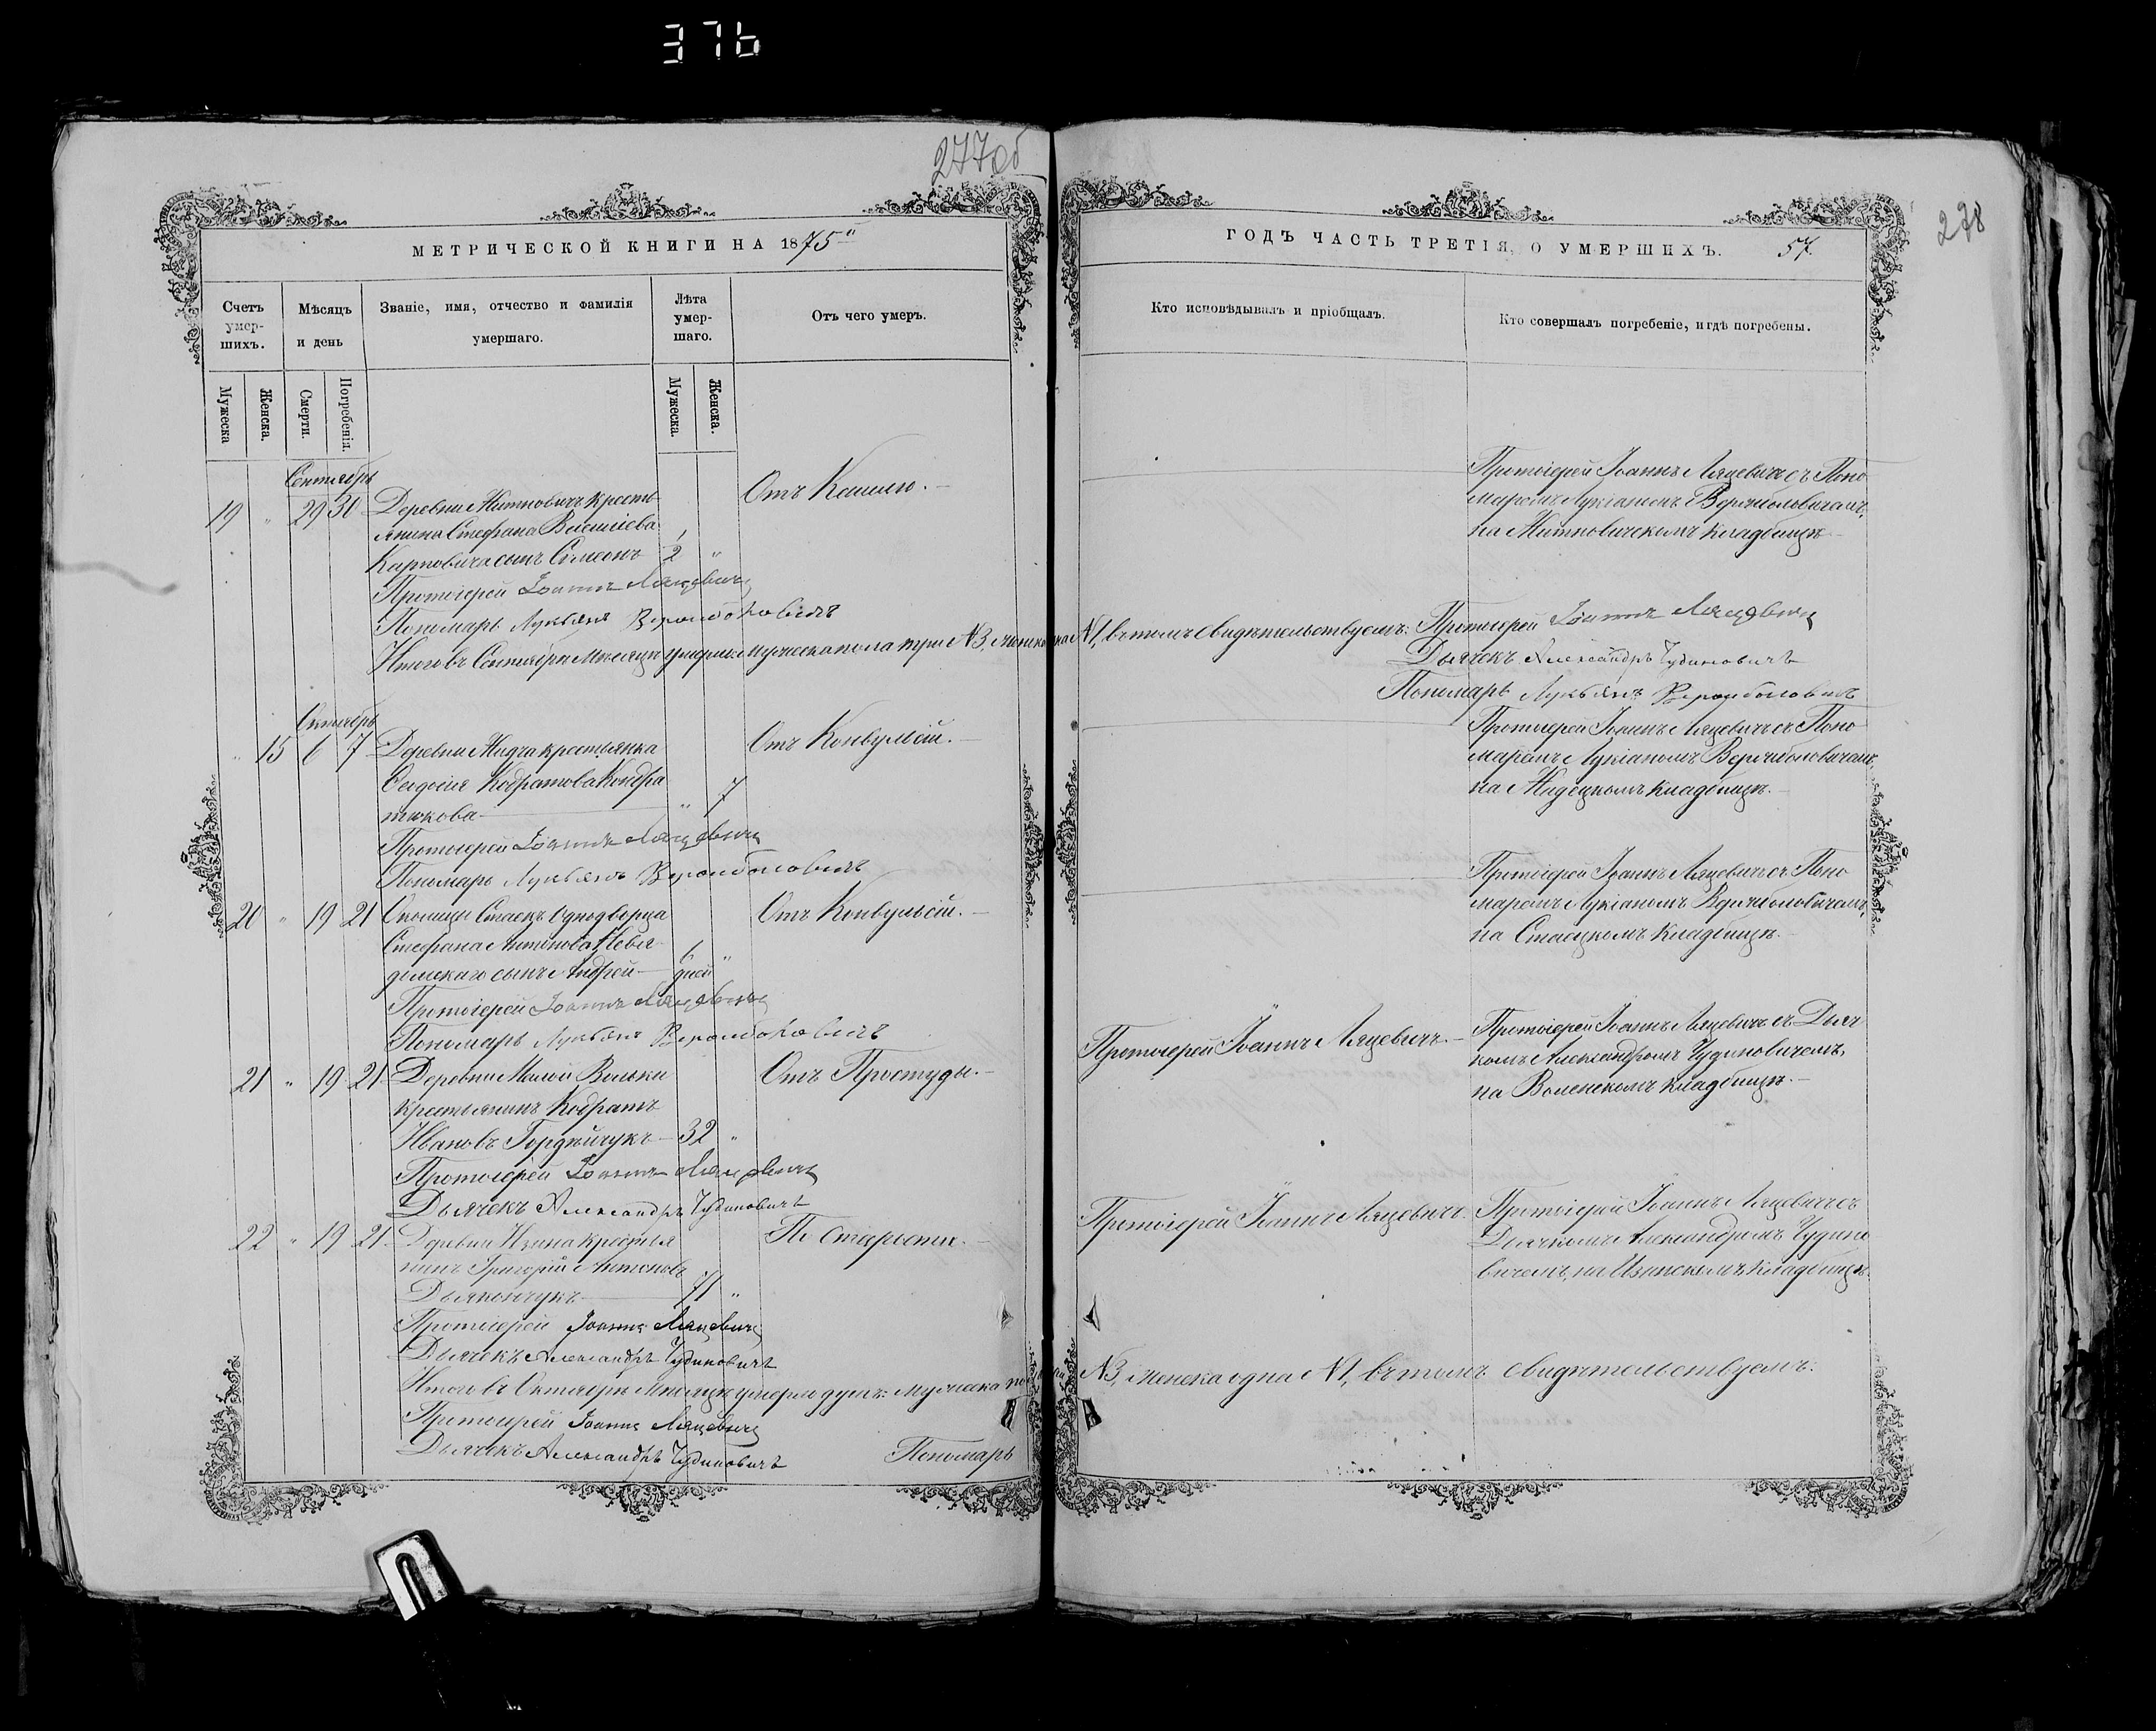 376
277 об
МЕТРИЧЕСКОЙ КНИГИ НА 1875
Счетъ умер-шихъ.
Мѣсяцъ и день
Званіе, имя, отчество и фамилія умершаго.
Лѣта умер-шаго.
Отъ чего умеръ.
Мужеска
Женска.
Смерти.
Погребенія.
Мужеска.
Женска.
Сентябрь
19 " 29 30 Деревни Житновичъ кресть
янина Стефана Васильева
Карповича сынъ Симеонъ 1/2 "
Отъ Кашлю.
Протоіерей Іоаннъ Ляцевичъ
Пономарь Лукьянъ
Итого въ Сентябрѣ Мѣсяцѣ умерло: мужеска пола три №3, женска одна №1, въ томъ свидѣтельствуемъ:
Октябрь
" 15 6 7 Деревни Жидча крестьянка
Евдокія Кодратова Кондра
тюкова " 7
Отъ Конвульсіи.
Протоіерей Іоаннъ Ляцевичъ
Пономарь Лукьянъ
20 " 19 21 Околицы Стаекъ Однодворца
Стефана Антонова Невя
домскаго сынъ Андрей 6 дней "
Отъ Конвульсіи.
Протоіерей Іоаннъ Ляцевичъ
Пономарь Лукьянъ
21 " 19 21 Деревни Малой Вольки
крестьянинъ Кодратъ
Ивановъ Гордѣйчукъ 32 "
Отъ Простуды.
Протоіерей Іоаннъ Ляцевичъ
Дьячекъ Александръ Чудиновичъ
22 " 19 21 Деревни Изина крестья
нинъ Григорій Антоновъ
Дьякончукъ 71 "
По Старости.
Протоіерей Іоаннъ Ляцевичъ
Дьячекъ Александръ Чудиновичъ
Итого въ Октябрѣ Мѣсяцѣ умерло душъ: мужеска
Протоіерей Іоаннъ Ляцевичъ
Дьячекъ Александръ Чудиновичъ Пономарь
278
ГОДЪ ЧАСТЬ ТРЕТІЯ, О УМЕРШИХЪ. 57.
Кто исповѣдывалъ и пріобщалъ.
Кто совершалъ погребеніе, и гдѣ погребены.
Протоіерей Іоаннъ Ляцевичъ съ Поно
маремъ Лукіаномъ
на Житновичскомъ кладбищѣ
Протоіерей Іоаннъ Ляцевичъ
Дьячекъ Александръ Чудиновичъ
Пономарь Лукьянъ
Протоіерей Іоаннъ Ляцевичъ съ Поно
маремъ Лукіаномъ
на Жидецкомъ кладбищѣ.
Протоіерей Іоаннъ Ляцевичъ съ Поно
маремъ Лукіаномъ
на Стаецкомъ кладбищѣ.
Протоіерей Іоаннъ Ляцевичъ.
Протоіерей Іоаннъ Ляцевичъ съ Дьяч
комъ Александромъ Чудиновичемъ,
на Воленскомъ кладбищѣ.
Протоіерей Іоаннъ Ляцевичъ.
Протоіерей Іоаннъ Ляцевичъ съ
Дьячкомъ Александромъ Чудино
вичемъ, на Изинскомъ кладбищѣ.
№3, женска одна №1, въ томъ свидѣтельствуемъ: